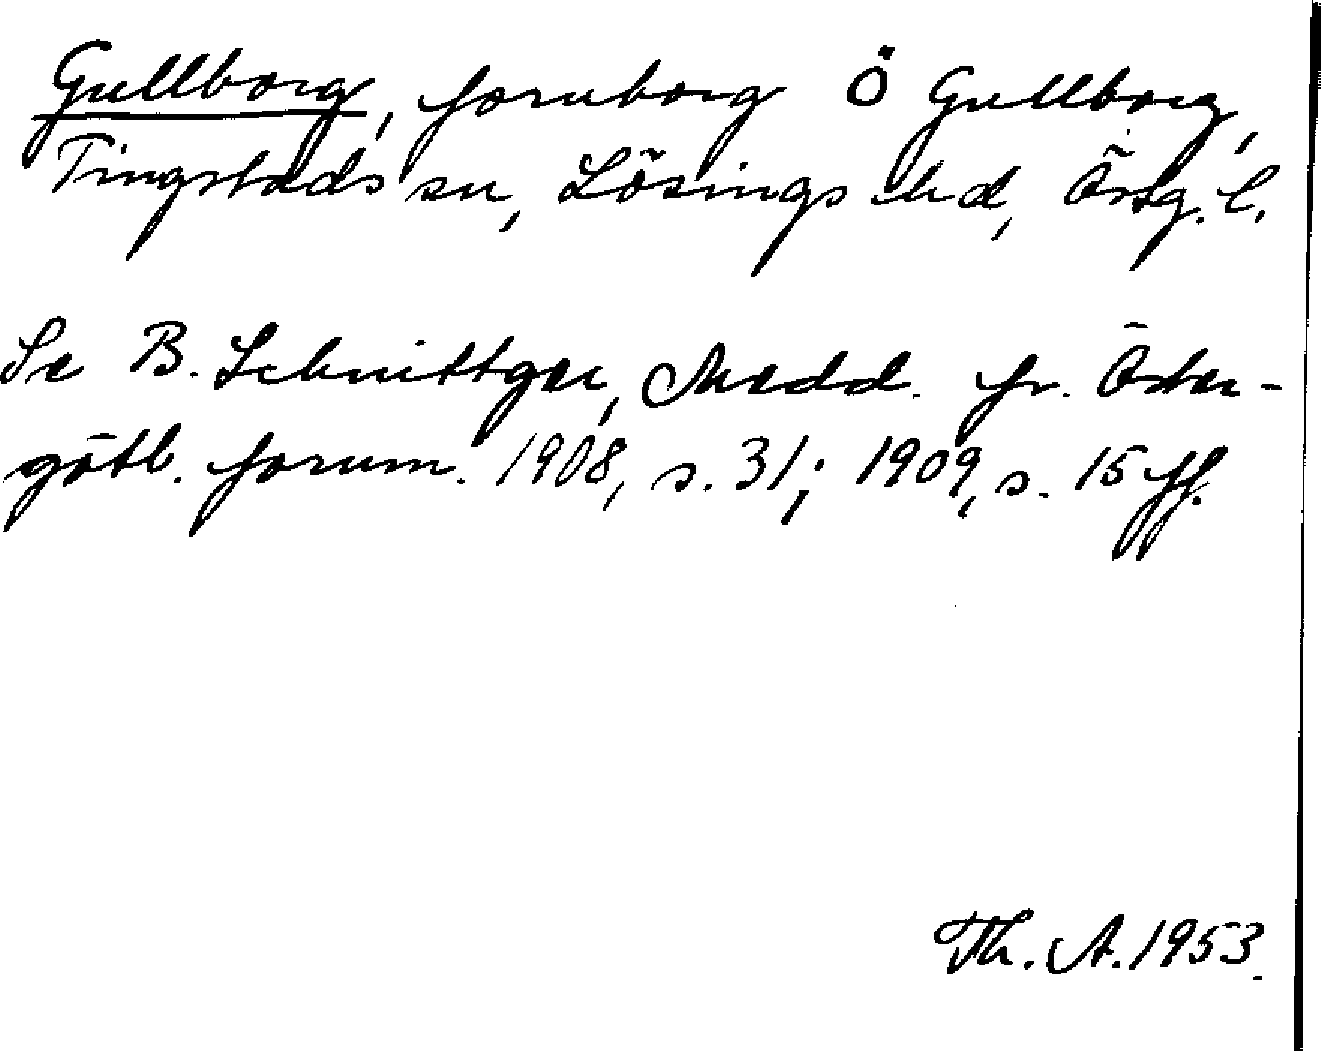 Gullborg, fornborg Ö Gullborg,
Tingstads sn, Lösings hd, Östg. l.
Se B. Schnittger, Medd. fr. Öster-
götl. fornm. 1908, s. 31; 1909, s. 15 ff.
Th. A. 1953.